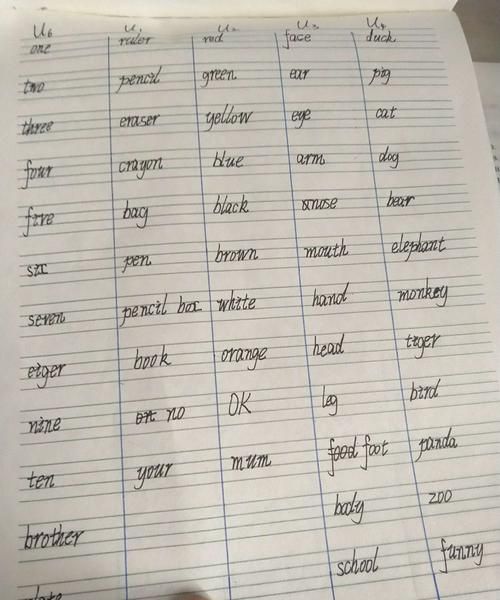 U6 U1 U2 U3 U4
one ruler red face duck
two pencil green ear pig
three eraser yellow eye cat
four crayon blue arm dog
five bag black nose bear
six pen brown mouth elephant
seven pencil box white hand monkey
eiger book orange head tiger
nine no OK leg bird
ten your mum food foot panda
brother body zoo
school funny